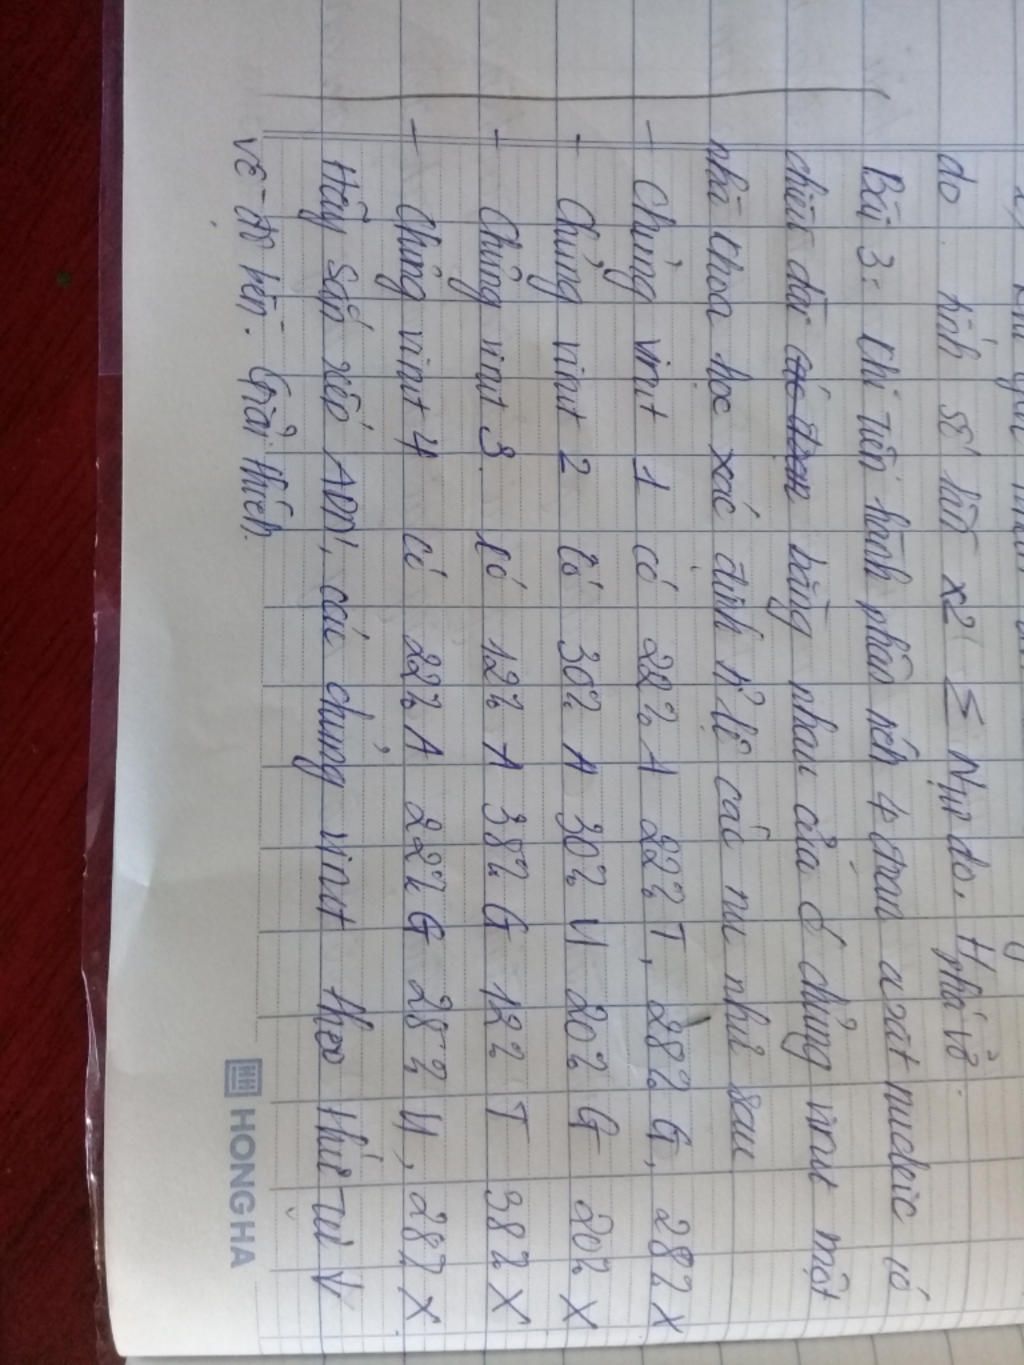 do kính số lần x2 ≤ Nụ do. H phá vỡ.
Bài 3: Khi tiến hành phân tích 4 đoạn axit nucleic có
chiều dài bằng nhau của 4 chủng virut một
nhà khoa học xác định tỉ lệ các nu như sau
- Chủng virut 1 có 22% A 22% T, 28% G, 28% X
- Chủng virut 2 có 30% A 30% U 20% G 20% X
- Chủng virut 3 có 12% A 38% G 12% T 38% X
- Chủng virut 4 có 22% A 22% G 28% U, 28% X
Hãy sắp xếp ADN, các chủng virut theo thứ tự ↓
về độ bền. Giải thích.
HONG HA